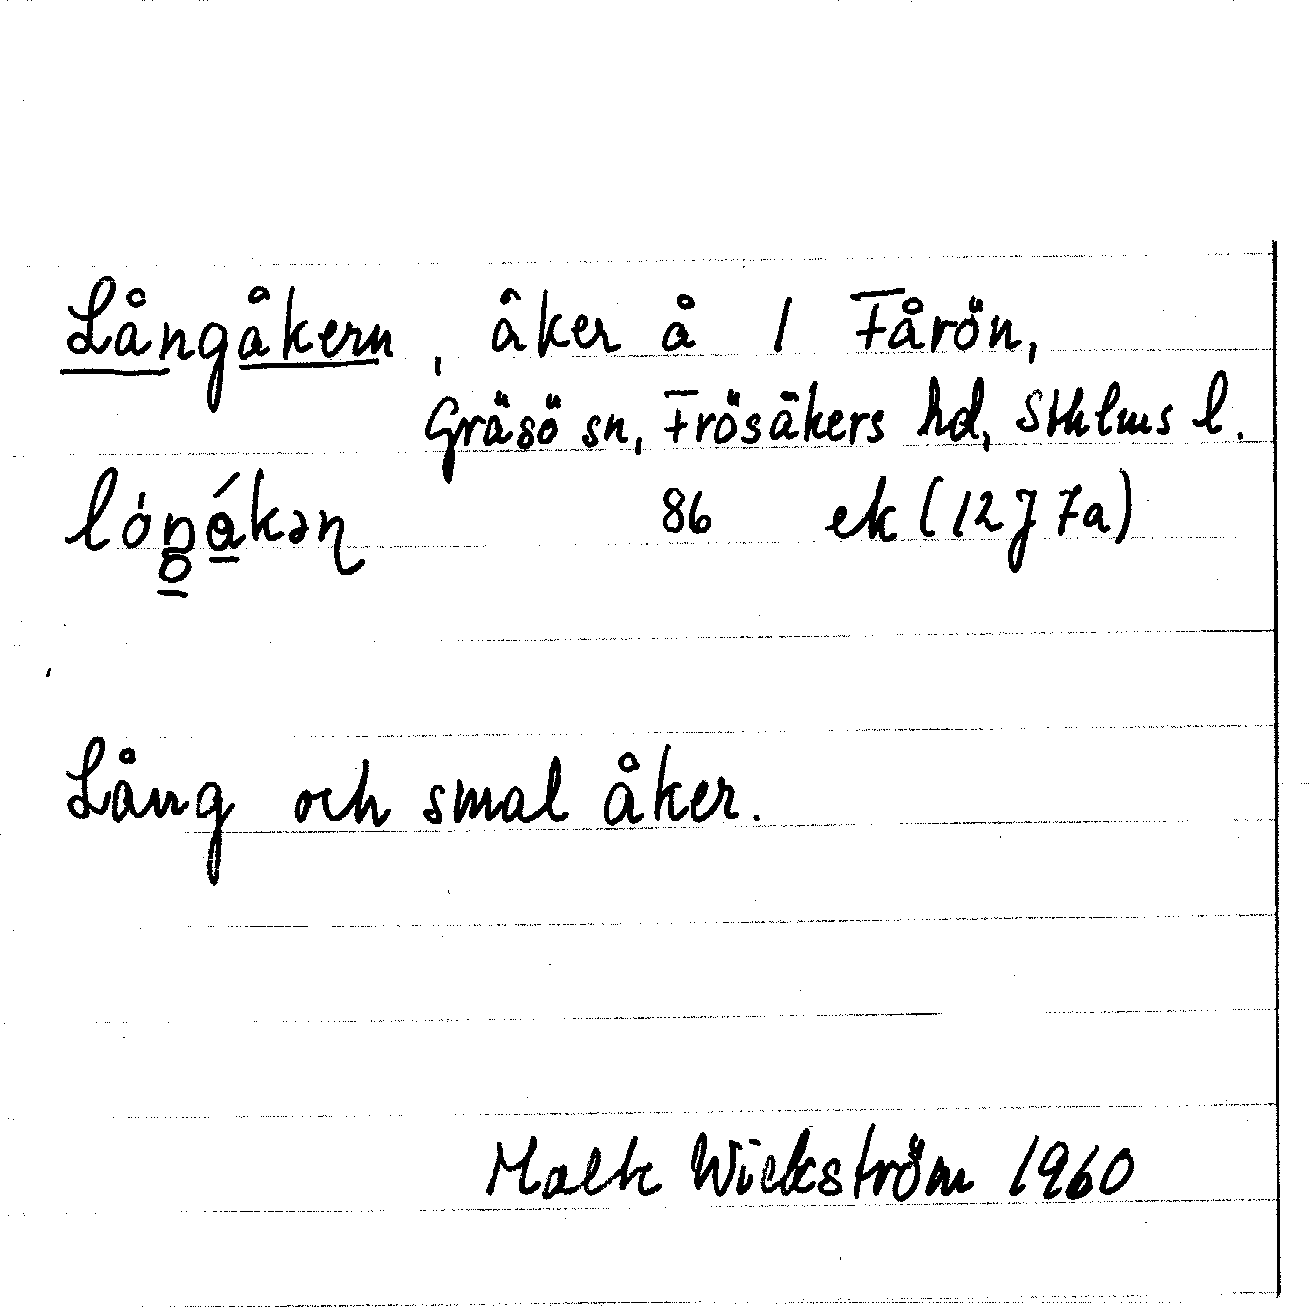 Långåkern, åker å 1 Fårön,
Gräsö sn, Frösåkers hd, Sthlms l.
86 ek (12J 7a)
Lång och smal åker.
Wickström 1960